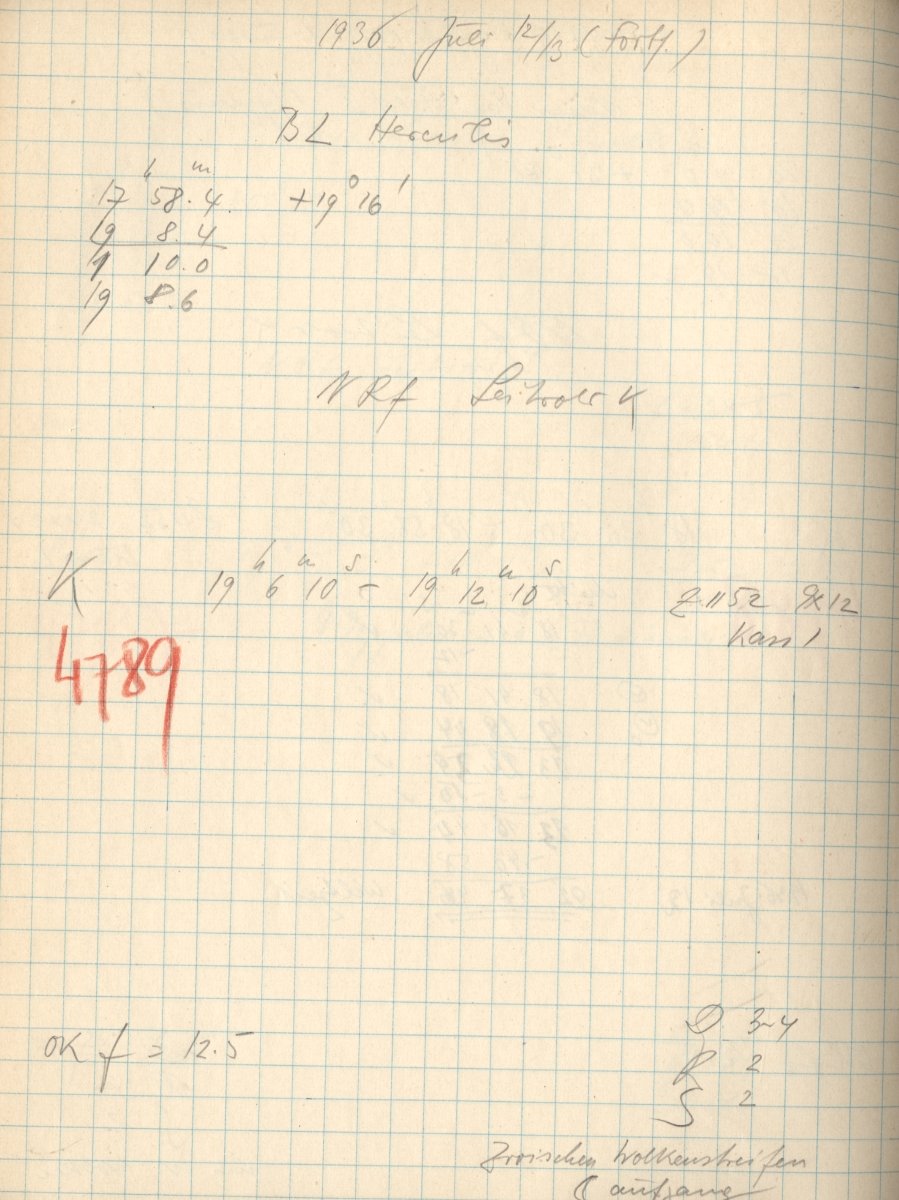 1936 Juli 12/13 (Forts.)
BL Herculis
h m
17 58.4 +19° 16'
19 8.4
1 10.0
19 8.6
NRf Leitrohr K
K 19h 6m 10s – 19h 12m 10s Z 1152 9x12
Kass 1
4789
OK f = 12.5
D 3-4
R 2
S 2
Zwischen Wolkenstreifen
☾ aufgang